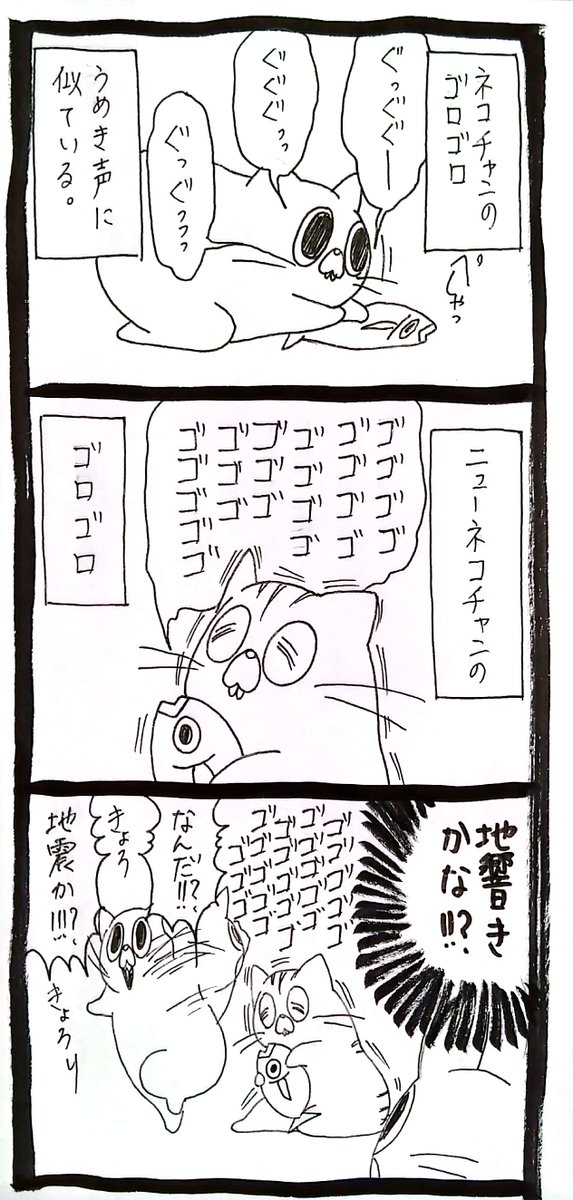 ネコチャンの
ゴロゴロ
ぺしゃっ
ぐっぐぐー
ぐぐぐっっ
ぐっぐっっっ
うめき声に
似ている。
ニューネコチャンの
ゴゴゴゴ
ゴゴゴゴ
ゴゴゴゴ
ゴゴゴ
ゴゴゴ
ゴゴゴゴゴ
ゴロゴロ
地響き
かな!!?
ゴゴゴゴ
ゴゴゴゴゴ
ゴゴゴゴ
ゴゴゴゴゴ
ゴゴゴゴ
なんだ!!?
きょろ
地震か!!!?
きょろり